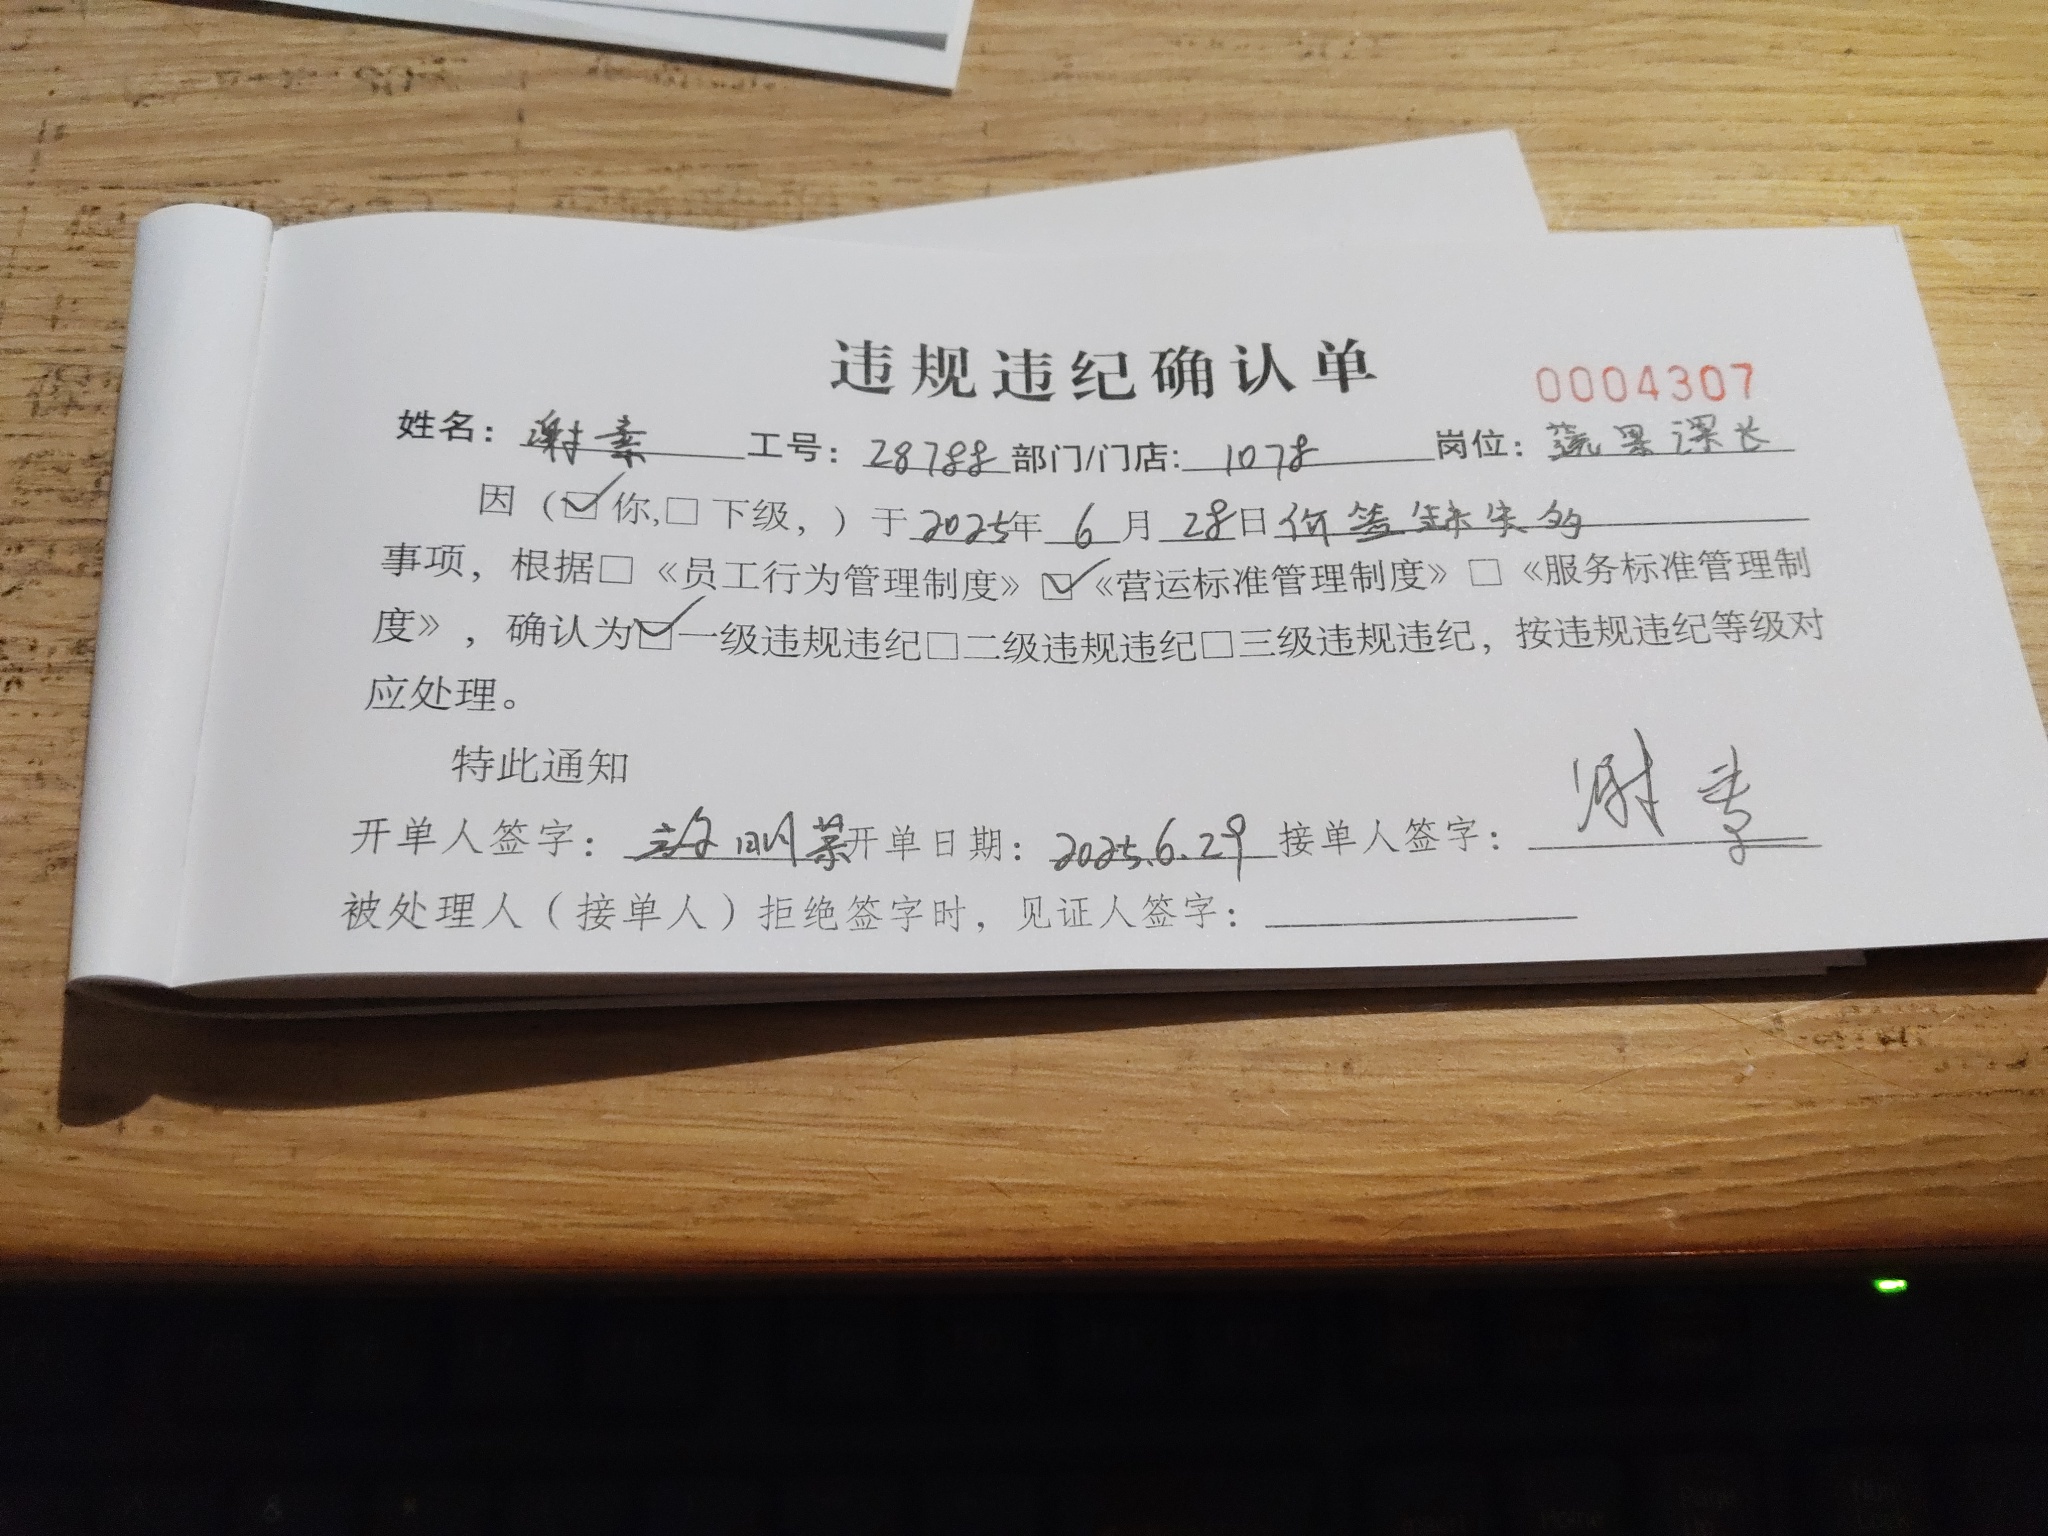 违规违纪确认单
0004307
姓名：谢素 工号：28788 部门/门店：1078 岗位：蔬果课长
因（☑你,□下级，）于2025年6月28日价签缺失的
事项，根据□《员工行为管理制度》☑《营运标准管理制度》□《服务标准管理制
度》，确认为☑一级违规违纪□二级违规违纪□三级违规违纪，按违规违纪等级对
应处理。
特此通知
开单人签字： 开单日期：2025.6.29 接单人签字：谢素
被处理人（接单人）拒绝签字时，见证人签字：